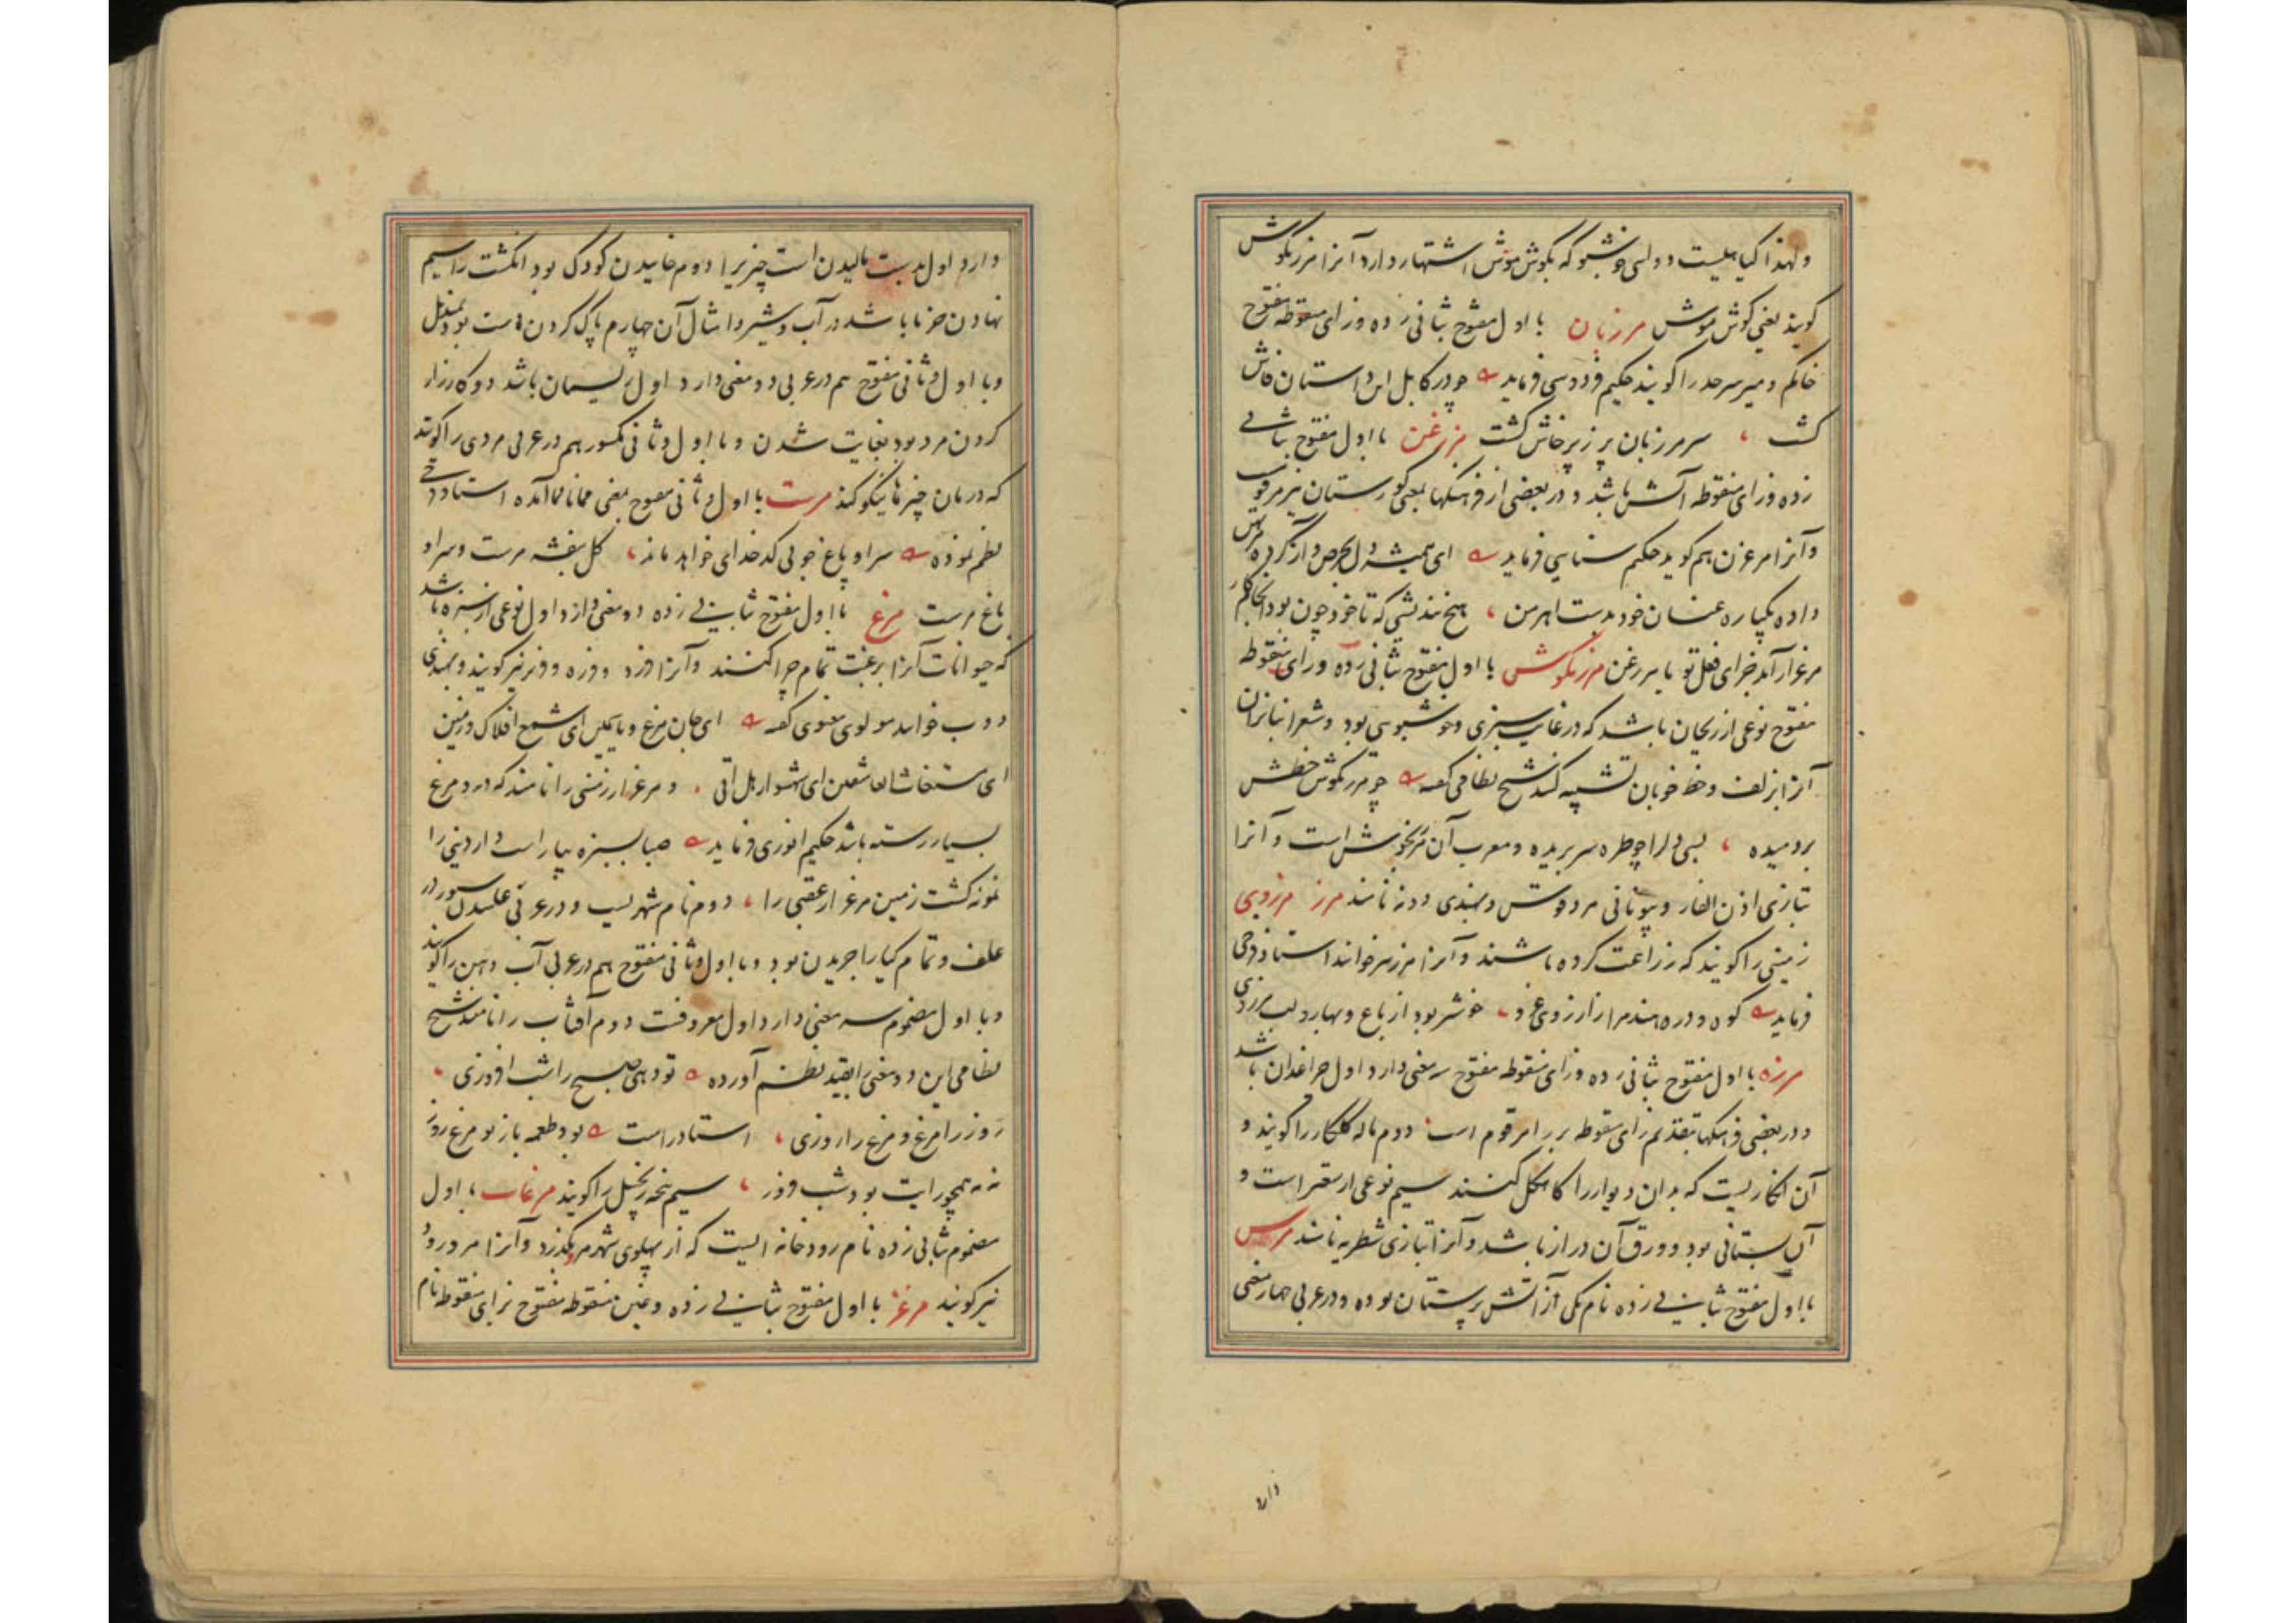 ولهذا گیاهیست دوائی خوشبو که بگوش موش اشتهار دارد آنرا مرزنگوش
گویند یعنی گوش موش مرزبان با اول مفتوح بثانی زده و زای منقوطه مفتوح
حاکم و میر سرحد را گویند حکیم فردوسی فرماید چو در کابل این داستان فاش
گشت سر مرزبان پر ز پرخاش گشت مرزغن با اول مفتوح بثانی
زده و زای منقوطه آتش باشد و در بعضی از فرهنگها بمعنی گورستان نیز مرقوم
و آنرا مرغزن هم گویند حکیم سنایی فرماید ای همیشه دل بحرص و آز کرده مرتهن
داده یکباره عنان خود بدست اهرمن هیچ نندیشی که تا خود چون بود انجام کار
مرغزار آمد جزای فعل تو یا مرزغن مرزنگوش با اول مفتوح بثانی زده و زای منقوطه
مفتوح نوعی از ریحان باشد که در غایت سبزی و خوشبویی بود و شعرا بنابران
آنرا بزلف و خط خوبان تشبیه کنند شیخ نظامی گفته چو مرزنگوش خطش
بردمیده بسی دل را چو طره سر بریده و معرب آن مرزنجوش است و آنرا
بتازی اذن الفار و بیونانی مردقوش و بهندی دونه نامند مرز مرزوی
زمینی را گویند که زراعت کرده باشند و آنرا مرز نیز خوانند استاد فرخی
فرماید کوه و دره هند مرا ز آرزوی غزو خوشتر بود از باغ و بهار و لب مرزوی
مرزه با اول مفتوح بثانی زده و زای منقوطه مفتوح سه معنی دارد اول چراغدان باشد
و در بعضی فرهنگها بتقدیم زای منقوطه بر را مرقوم است دوم ماله گلکار را گویند و
آن افزاریست که بدان دیوار را کاهگل کنند سیم نوعی از سعتر است و
آن بستانی بود و ورق آن دراز باشد و آنرا بتازی شطریه نامند مرس
با اول مفتوح بثانی زده نام یکی از آتش پرستان بوده و در عربی چهار معنی
دارد
دارد اول بدست مالیدن است چیزیرا دوم خاییدن کودک بود انگشت را سیم
نهادن خرما باشد در آب و شیر و امثال آن چهارم پاک کردن دست بود بمندیل
و با اول و ثانی مفتوح هم در عربی دو معنی دارد اول ریسمان باشد دو کارزار
کردن مرد بود بغایت شدن و با اول و ثانی مکسور هم در عربی مردی را گویند
که درمان چیزها نیکو کند مرست با اول و ثانی مفتوح بمعنی همانا آمده استاد دقیقی
نظم نموده سرا و باغ چو بی کدخدای خواهد ماند گل بنفشه مرست و سرا و
باغ مرست مرغ با اول مفتوح بثانی زده دو معنی دارد اول نوعی از سبزه باشد
که حیوانات آنرا برغبت تمام چرا کنند و آنرا فرزد و فرزه و فرز نیز گویند و بهندی
دوب خوانند مولوی معنوی گفته ای جان مرغ و یاسمین ای شمع افلاک و زمین
ای مستغاث العاشقین ای شهسوار هل اتی و مرغزار زمینی را نامند که در و مرغ
بسیار رسته باشد حکیم انوری فرماید صبا بسبزه بیاراست دار دنیی را
نمونه گشت زمین مرغزار عقبی را دوم نام شهریست و در عربی غلتیدن ستور در
علف و تمام گیا را چریدن بود و با اول و ثانی مفتوح هم در عربی آب دهن را گویند
و با اول مضموم سه معنی دارد اول معروفست دوم آفتاب را نامند شیخ
نظامی این دو معنی را بقید نظم آورده تو دهی صبح را شب افروزی
روز را مرغ و مرغ را روزی استاد راست بود طعمه باز تو مرغ روز
نه همچو رایت بود شب فروز سیم پنجه زنجبیل را گویند مرغاب با اول
مضموم بثانی زده نام رودخانه ایست که از پهلوی شهر مرو بگذرد و آنرا مرورود
نیز گویند مرغز با اول مفتوح بثانی زده و غین منقوطه مفتوح بزای منقوطه نام